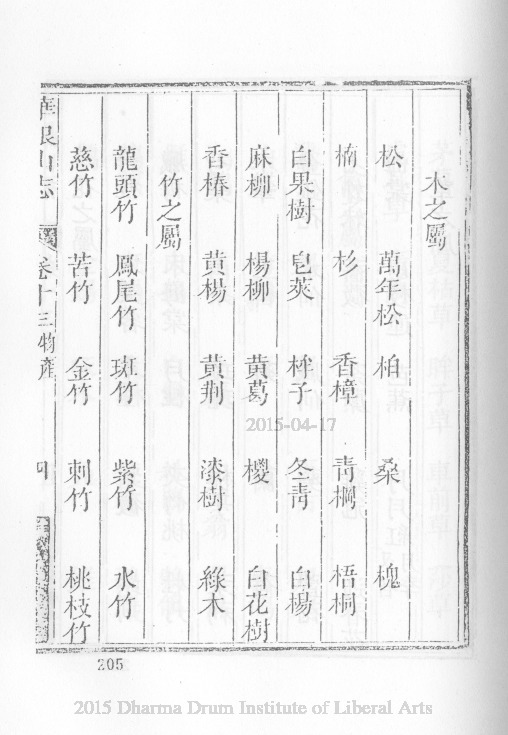 木之屬
松 萬年松 柏 桑 槐
楠 杉 香樟 青棡 梧桐
白果樹 皂莢 柈子 冬青 白楊
麻柳 楊柳 黃葛 㮨 白花樹
香椿 黃楊 黃荆 漆樹 綠木
竹之屬
龍頭竹 鳳尾竹 斑竹 紫竹 水竹
慈竹 苦竹 金竹 刺竹 桃枝竹
山志 卷十三 物產 四
205
2015-04-17
2015 Dharma Drum Institute of Liberal Arts